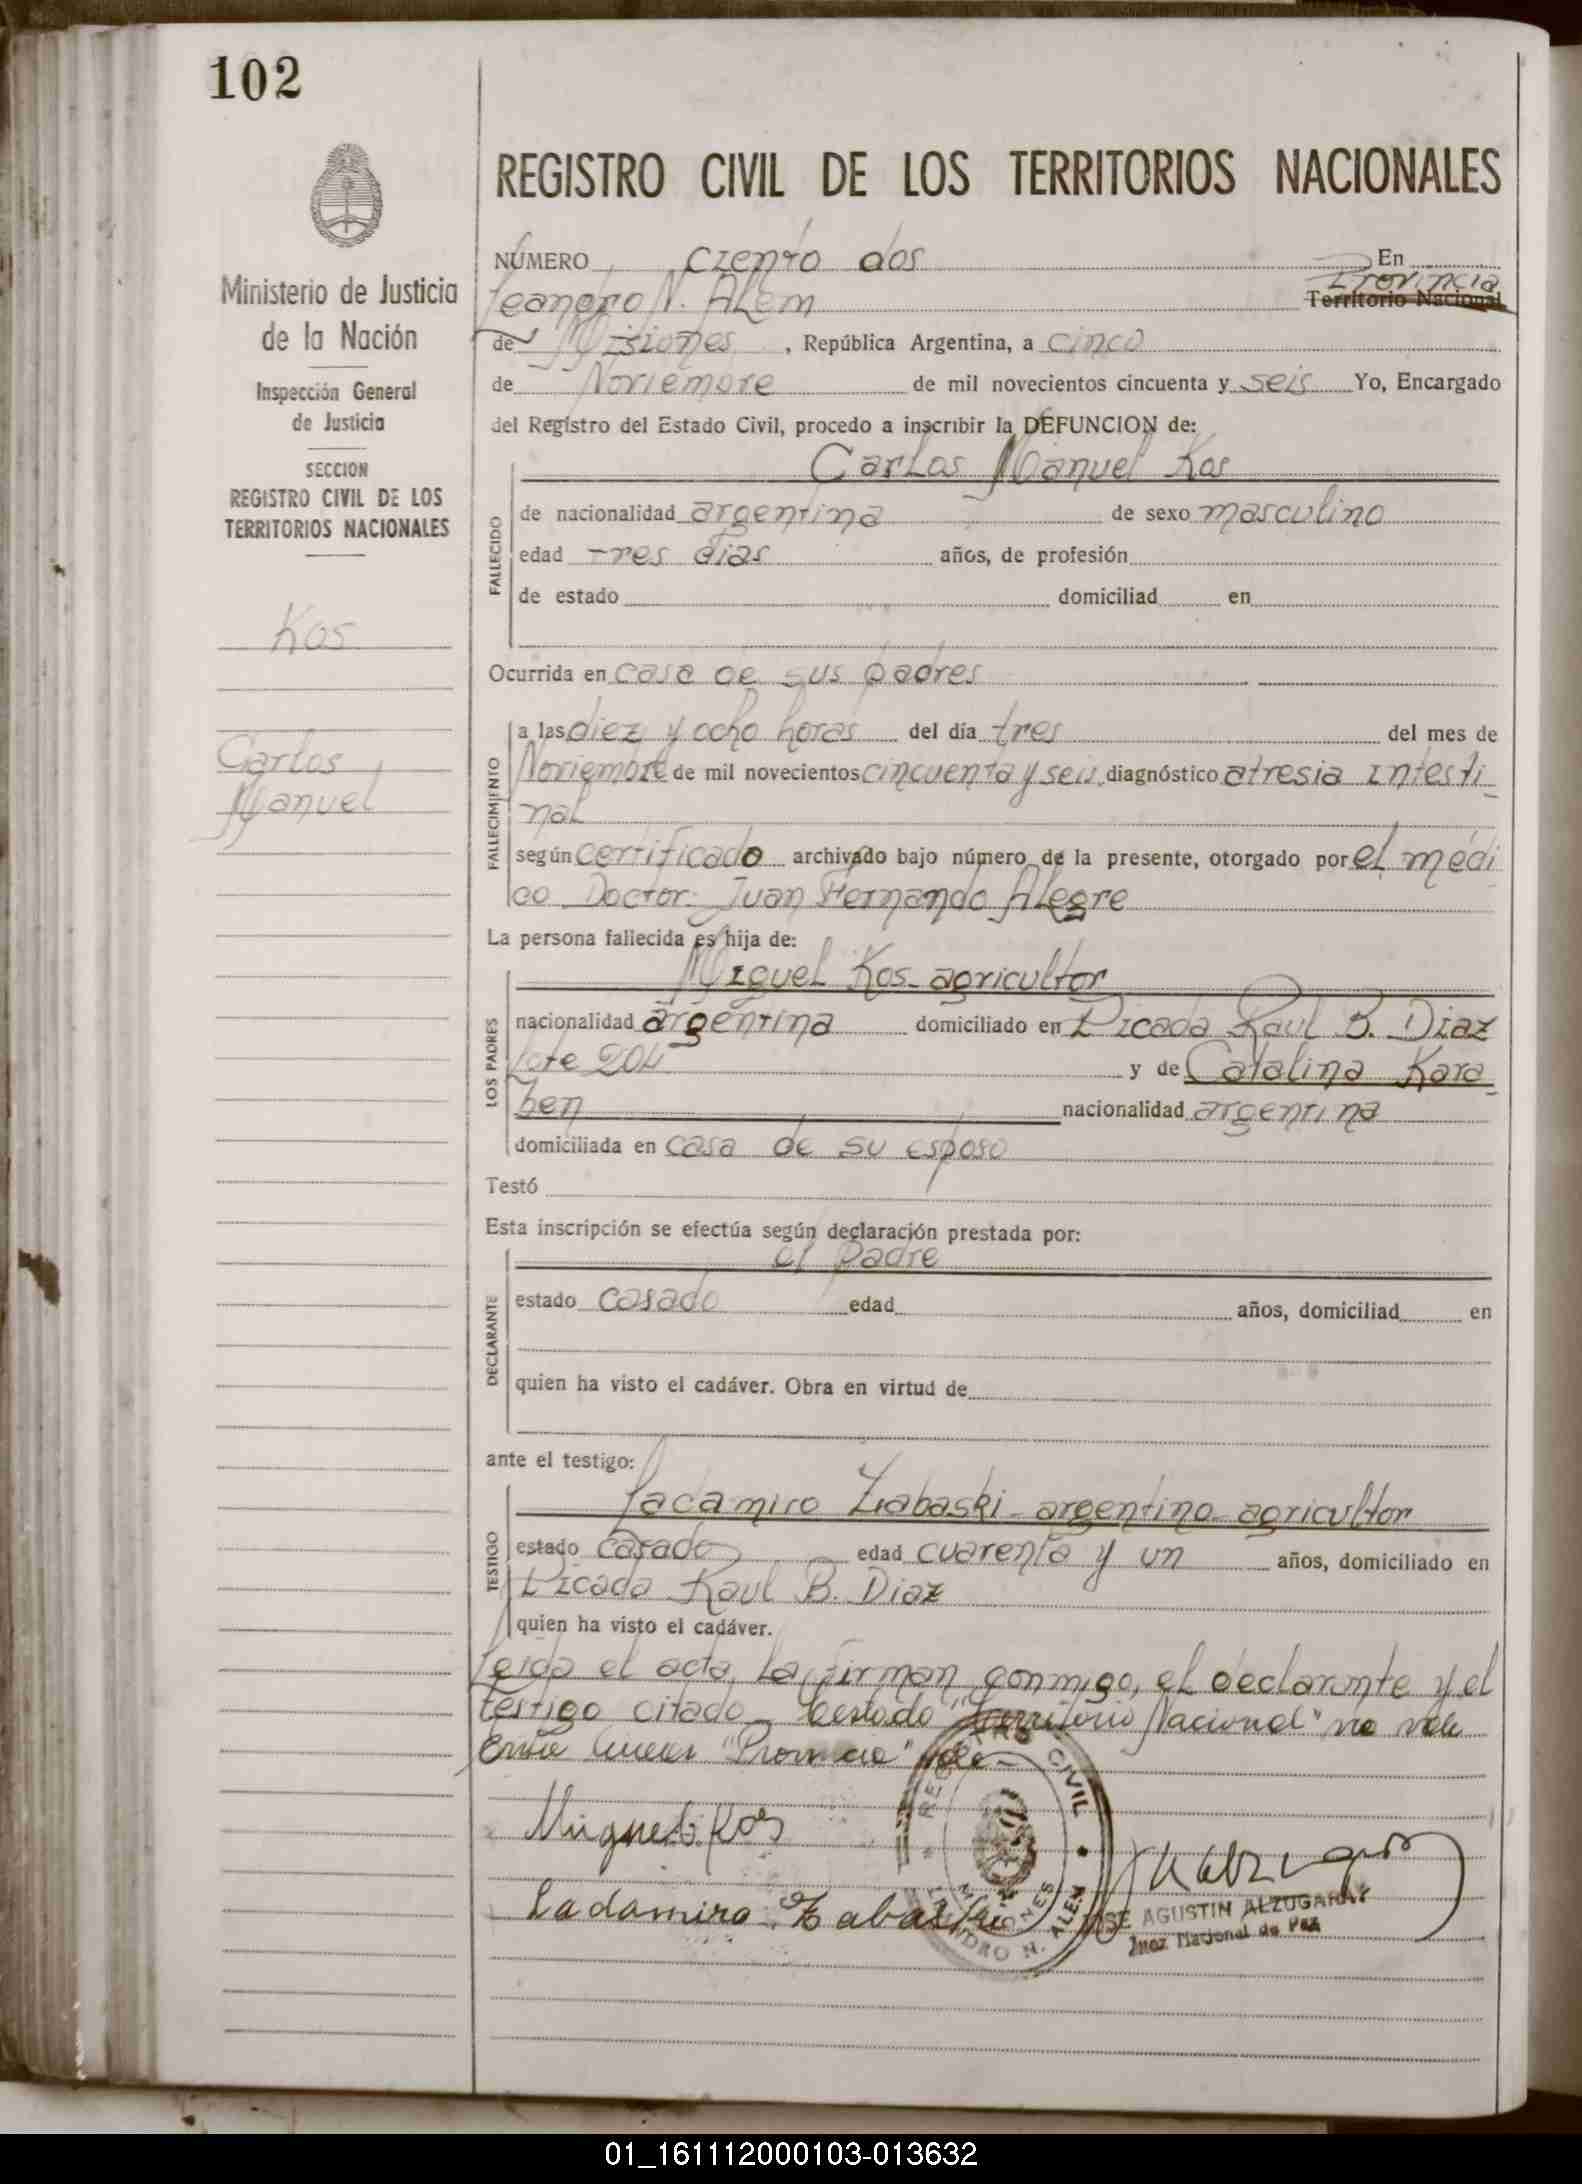 102
Ministerio de Justicia
de la Nación
Inspección General
de Justicia
SECCION
REGISTRO CIVIL DE LOS
TERRITORIOS NACIONALES
Kos
Carlos
Manuel
REGISTRO CIVIL DE LOS TERRITORIOS NACIONALES
NÚMERO ciento dos En
Leandro N. Alem Provincia Territorio Nacional
de Misiones, República Argentina, a cinco
de Noviembre de mil novecientos cincuenta y seis Yo, Encargado
del Registro del Estado Civil, procedo a inscribir la DEFUNCION de:
Carlos Manuel Kos
FALLECIDO
de nacionalidad argentina de sexo masculino
edad tres dias años, de profesión
de estado domiciliad en
Ocurrida en casa de sus padres
FALLECIMIENTO
a las diez y ocho horas del día tres del mes de
Noviembre de mil novecientos cincuenta y seis diagnóstico atresia intesti-
nal
según certificado archivado bajo número de la presente, otorgado por el médi
co Doctor: Juan Fernando Alegre
La persona fallecida es hija de:
LOS PADRES
Miguel Kos- agricultor
nacionalidad argentina domiciliado en Picada Raul B. Diaz
lote 204 y de Catalina Kara-
ben nacionalidad argentina
domiciliada en casa de su esposo
Testó
Esta inscripción se efectúa según declaración prestada por:
DECLARANTE
el padre
estado casado edad años, domiciliad en
quien ha visto el cadáver. Obra en virtud de
ante el testigo:
TESTIGO
Ladamiro Zabaski- argentino- agricultor
estado casado edad cuarenta y un años, domiciliado en
Picada Raul B. Diaz
quien ha visto el cadáver.
Leida el acta, la firman conmigo, el declarante y el
testigo citado- testado "Territorio Nacional" no vale
Entre lineas "Provincia" vale-
Miguel Kos
Ladamiro Zabaski
REGISTRO CIVIL
MISIONES
LEANDRO N. ALEM
JOSE AGUSTIN ALZUGARAY
Juez Nacional de Paz
01_161112000103-013632